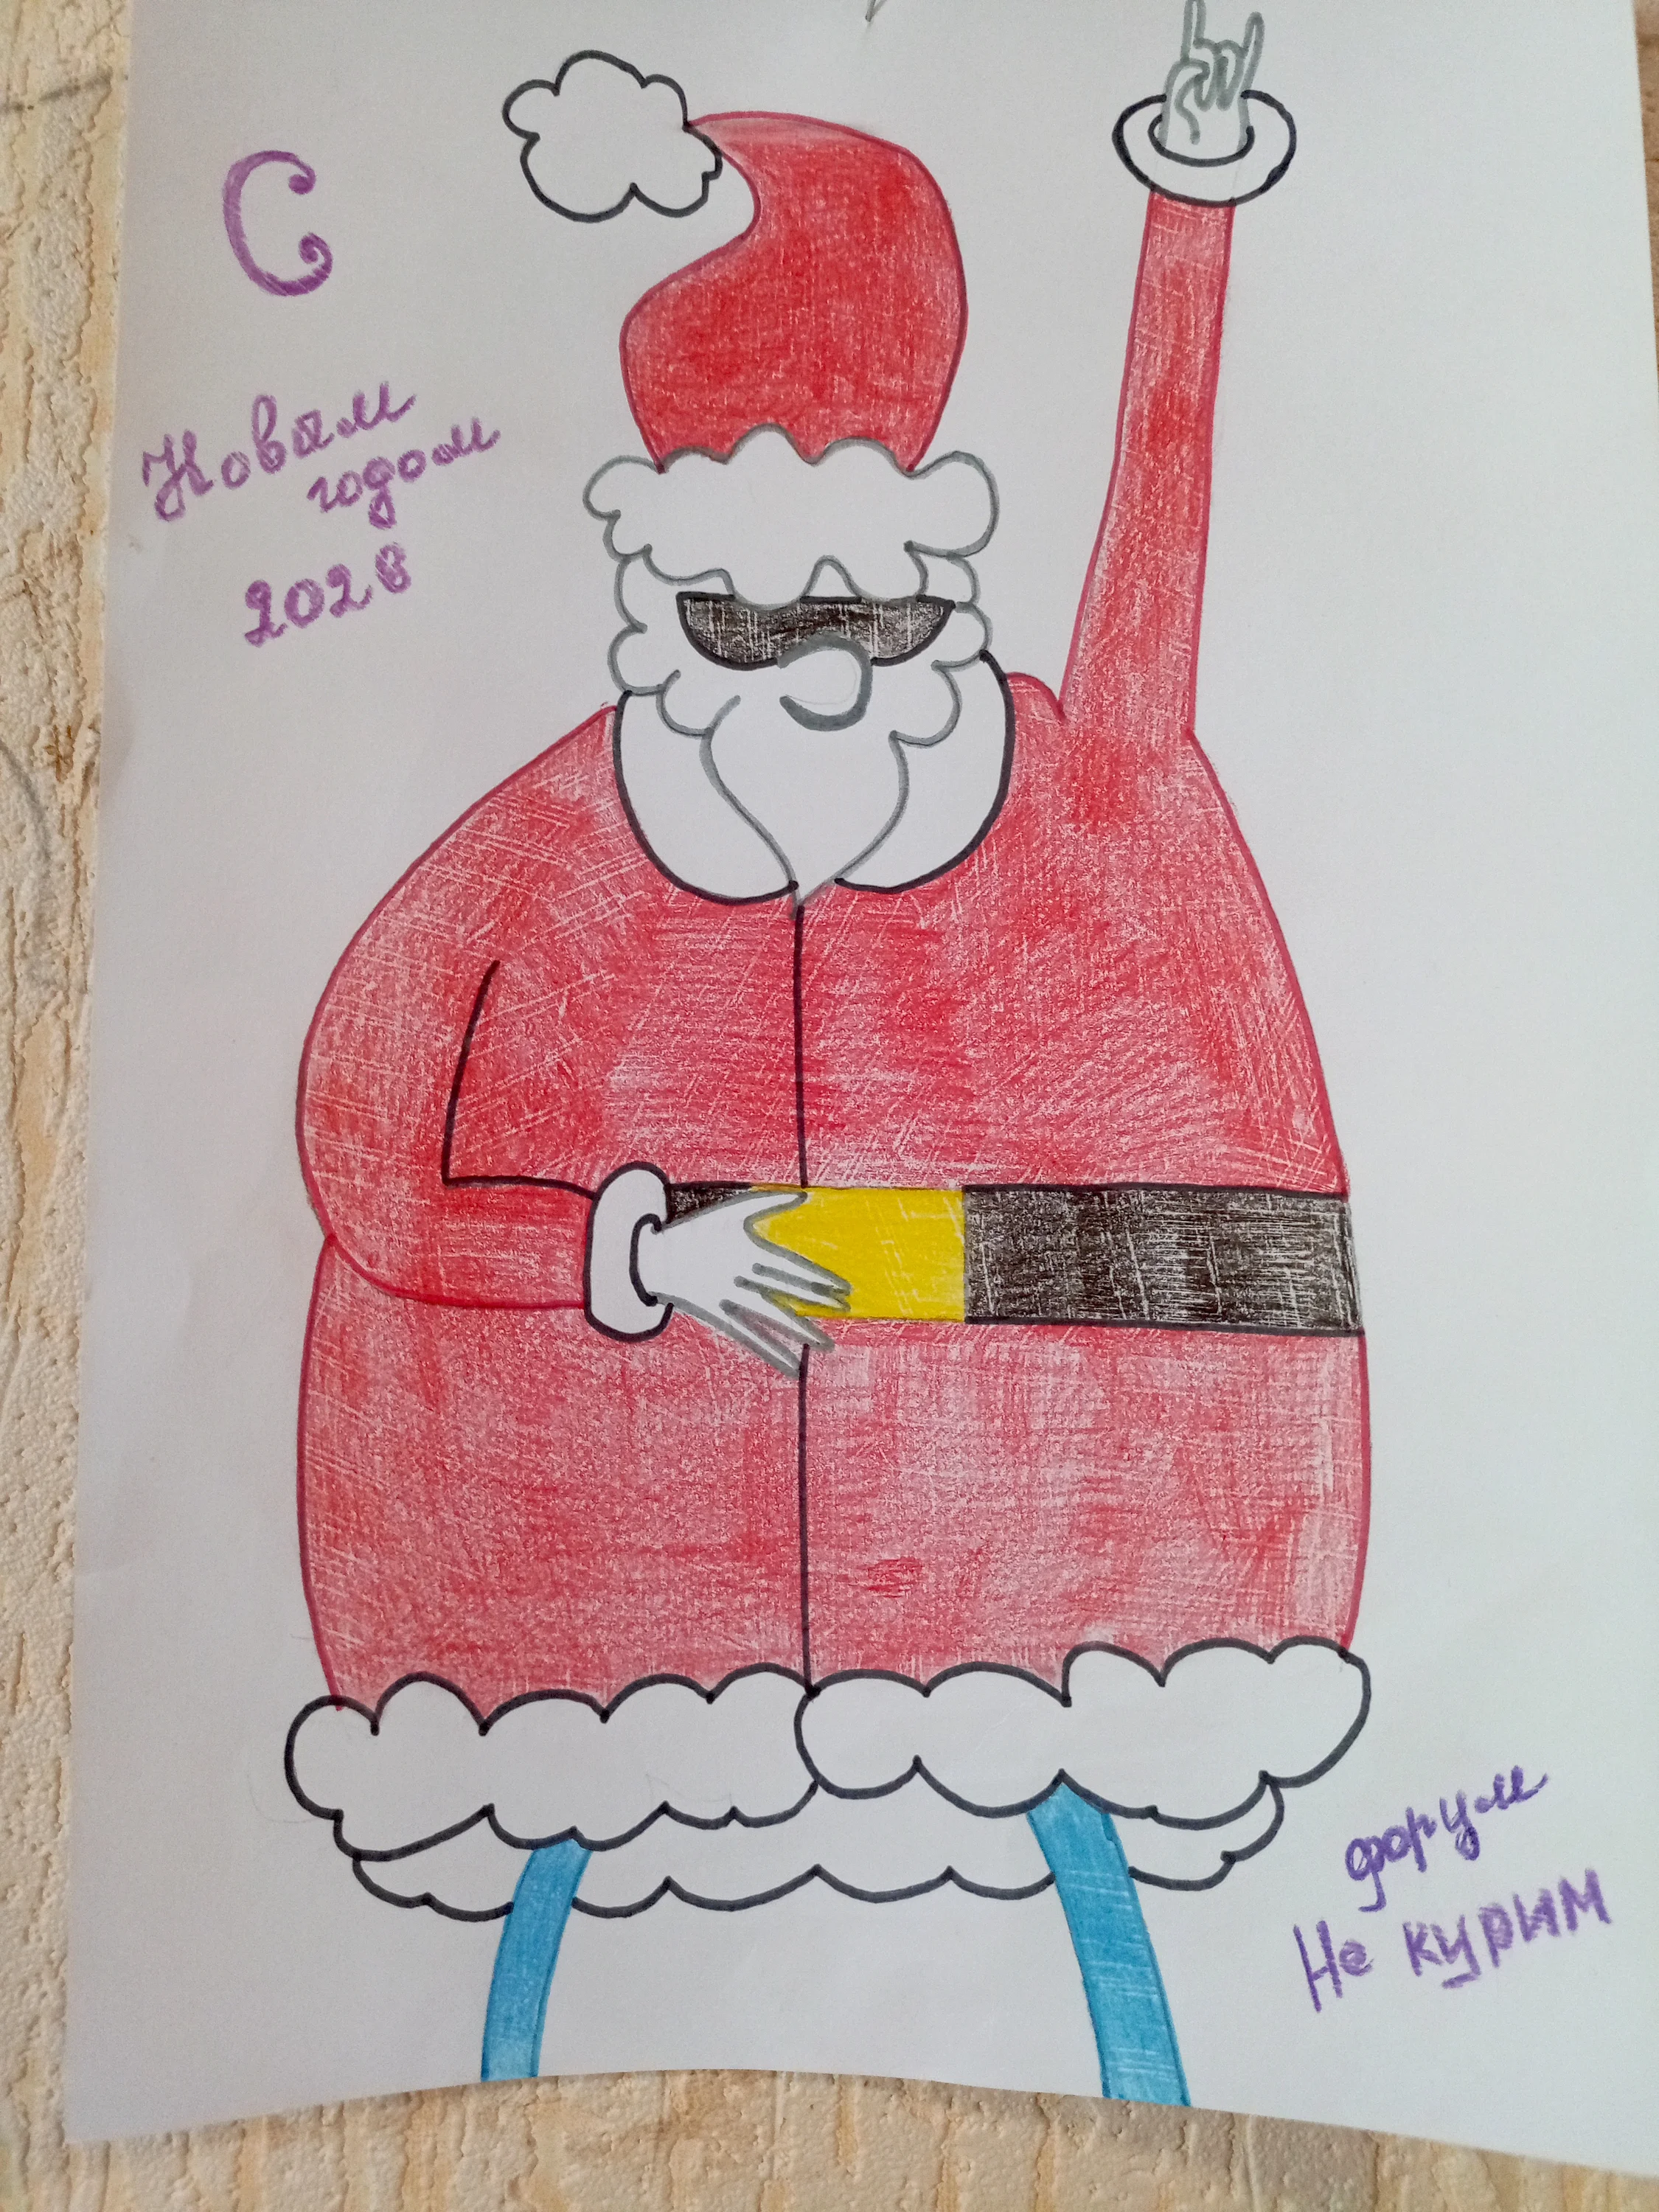 С
Новым
годом
2026
форум
Не курим